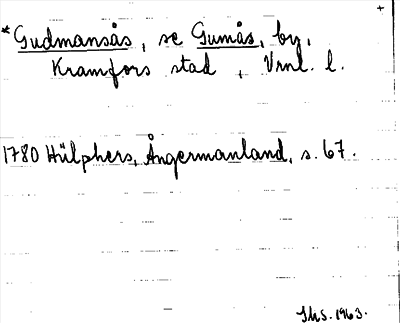 +
*Gudmansås, se Gumås, by,
Kramfors stad, Vrnl. l.
1780 Hülphers, Ångermanland, s. 67.
Ths. 1963.